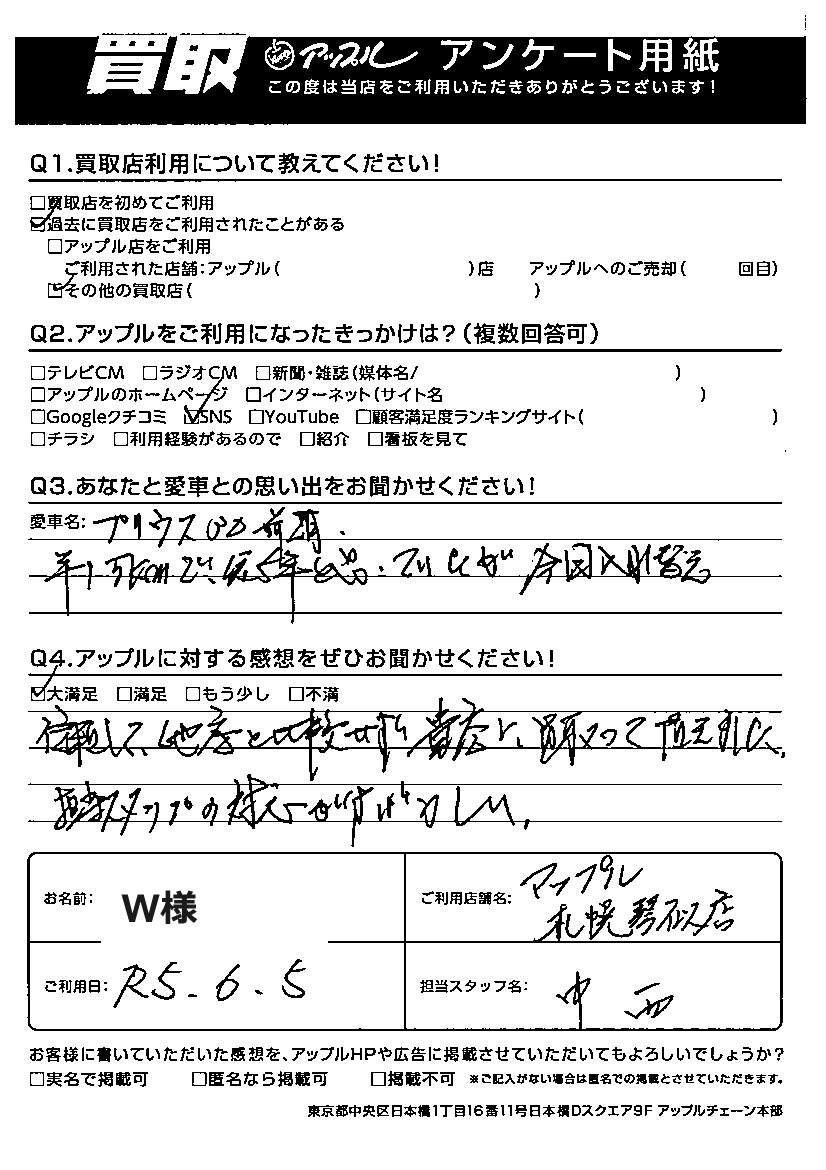 買取 アップル アンケート用紙
この度は当店をご利用いただきありがとうございます!
Q1.買取店利用について教えてください!
□買取店を初めてご利用
☑過去に買取店をご利用されたことがある
□アップル店をご利用
ご利用された店舗:アップル( )店 アップルへのご売却( 回目)
☑その他の買取店( )
Q2.アップルをご利用になったきっかけは?(複数回答可)
□テレビCM □ラジオCM □新聞・雑誌(媒体名/ )
□アップルのホームページ □インターネット(サイト名 )
□Googleクチコミ ☑SNS □YouTube □顧客満足度ランキングサイト( )
□チラシ □利用経験があるので □紹介 □看板を見て
Q3.あなたと愛車との思い出をお聞かせください!
愛車名: プリウス 前期.
今回入れ替え
Q4.アップルに対する感想をぜひお聞かせください!
☑大満足 □満足 □もう少し □不満
信頼して、他店と比較せずに貴店に、買取って頂きました、
スタッフの対応がすばらしい,
お名前: W様 ご利用店舗名: アップル
札幌琴似店
ご利用日: R5.6.5 担当スタッフ名: 中西
お客様に書いていただいた感想を、アップルHPや広告に掲載させていただいてもよろしいでしょうか?
□実名で掲載可 □匿名なら掲載可 □掲載不可 ※ご記入がない場合は匿名での掲載とさせていただきます。
東京都中央区日本橋1丁目16番11号日本橋Dスクエア9F アップルチェーン本部